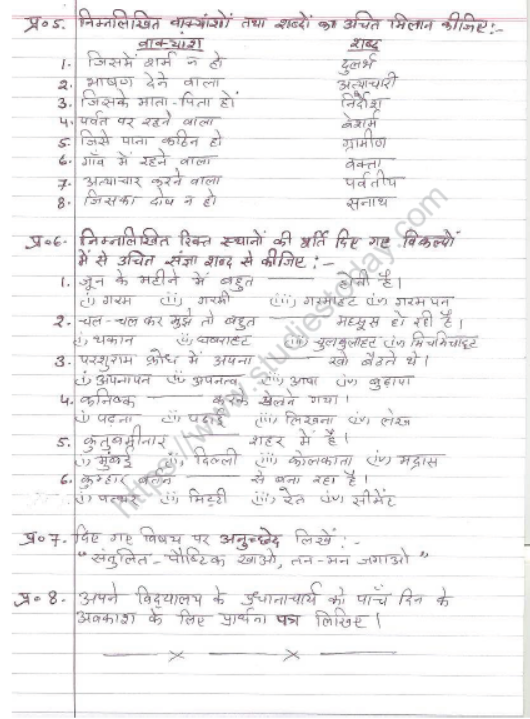 प्र०5. निम्नलिखित वाक्यांशों तथा शब्दों का उचित मिलान कीजिए:-
वाक्यांश शब्द
1. जिसमें शर्म न हो दुलर्भ
2. भाषण देने वाला अत्याचारी
3. जिसके माता-पिता हों निर्दोश
4. पर्वत पर रहने वाला बेशर्म
5. जिसे पाना कठिन हो ग्रामीण
6. गाँव में रहने वाला वक्ता
7. अत्याचार करने वाला पर्वतीय
8. जिसका दोष न हो सनाथ
प्र०6. निम्नलिखित रिक्त स्थानों की पूर्ति दिए गए विकल्पों
में से उचित संज्ञा शब्द से कीजिए:-
1. जून के महीने में बहुत ______ होती है।
(i) गरम (ii) गरमी (iii) गरमाहट (iv) गरमपन
2. चल-चल कर मुझे तो बहुत ______ महसूस हो रही है।
(i) थकान (ii) घबराहट (iii) चुलबुलाहट (iv) मिचमिचाहट
3. परशुराम क्रोध में अपना ______ खो बैठते थे।
(i) अपनापन (ii) अपनत्व (iii) आपा (iv) बुढ़ापा
4. कनिष्क ______ करके खेलने गया।
(i) पढ़ना (ii) पढ़ाई (iii) लिखना (iv) लेख
5. कुतुबमीनार ______ शहर में है।
(i) मुंबई (ii) दिल्ली (iii) कोलकाता (iv) मद्रास
6. कुम्हार बर्तन ______ से बना रहा है।
(i) पत्थर (ii) मिट्टी (iii) रेत (iv) सीमेंट
प्र०7. दिए गए विषय पर अनुच्छेद लिखें:-
"संतुलित-पौष्टिक खाओ, तन-मन जगाओ"
प्र०8. अपने विद्यालय के प्रधानाचार्य को पाँच दिन के
अवकाश के लिए प्रार्थना पत्र लिखिए।
https://www.studiestoday.com